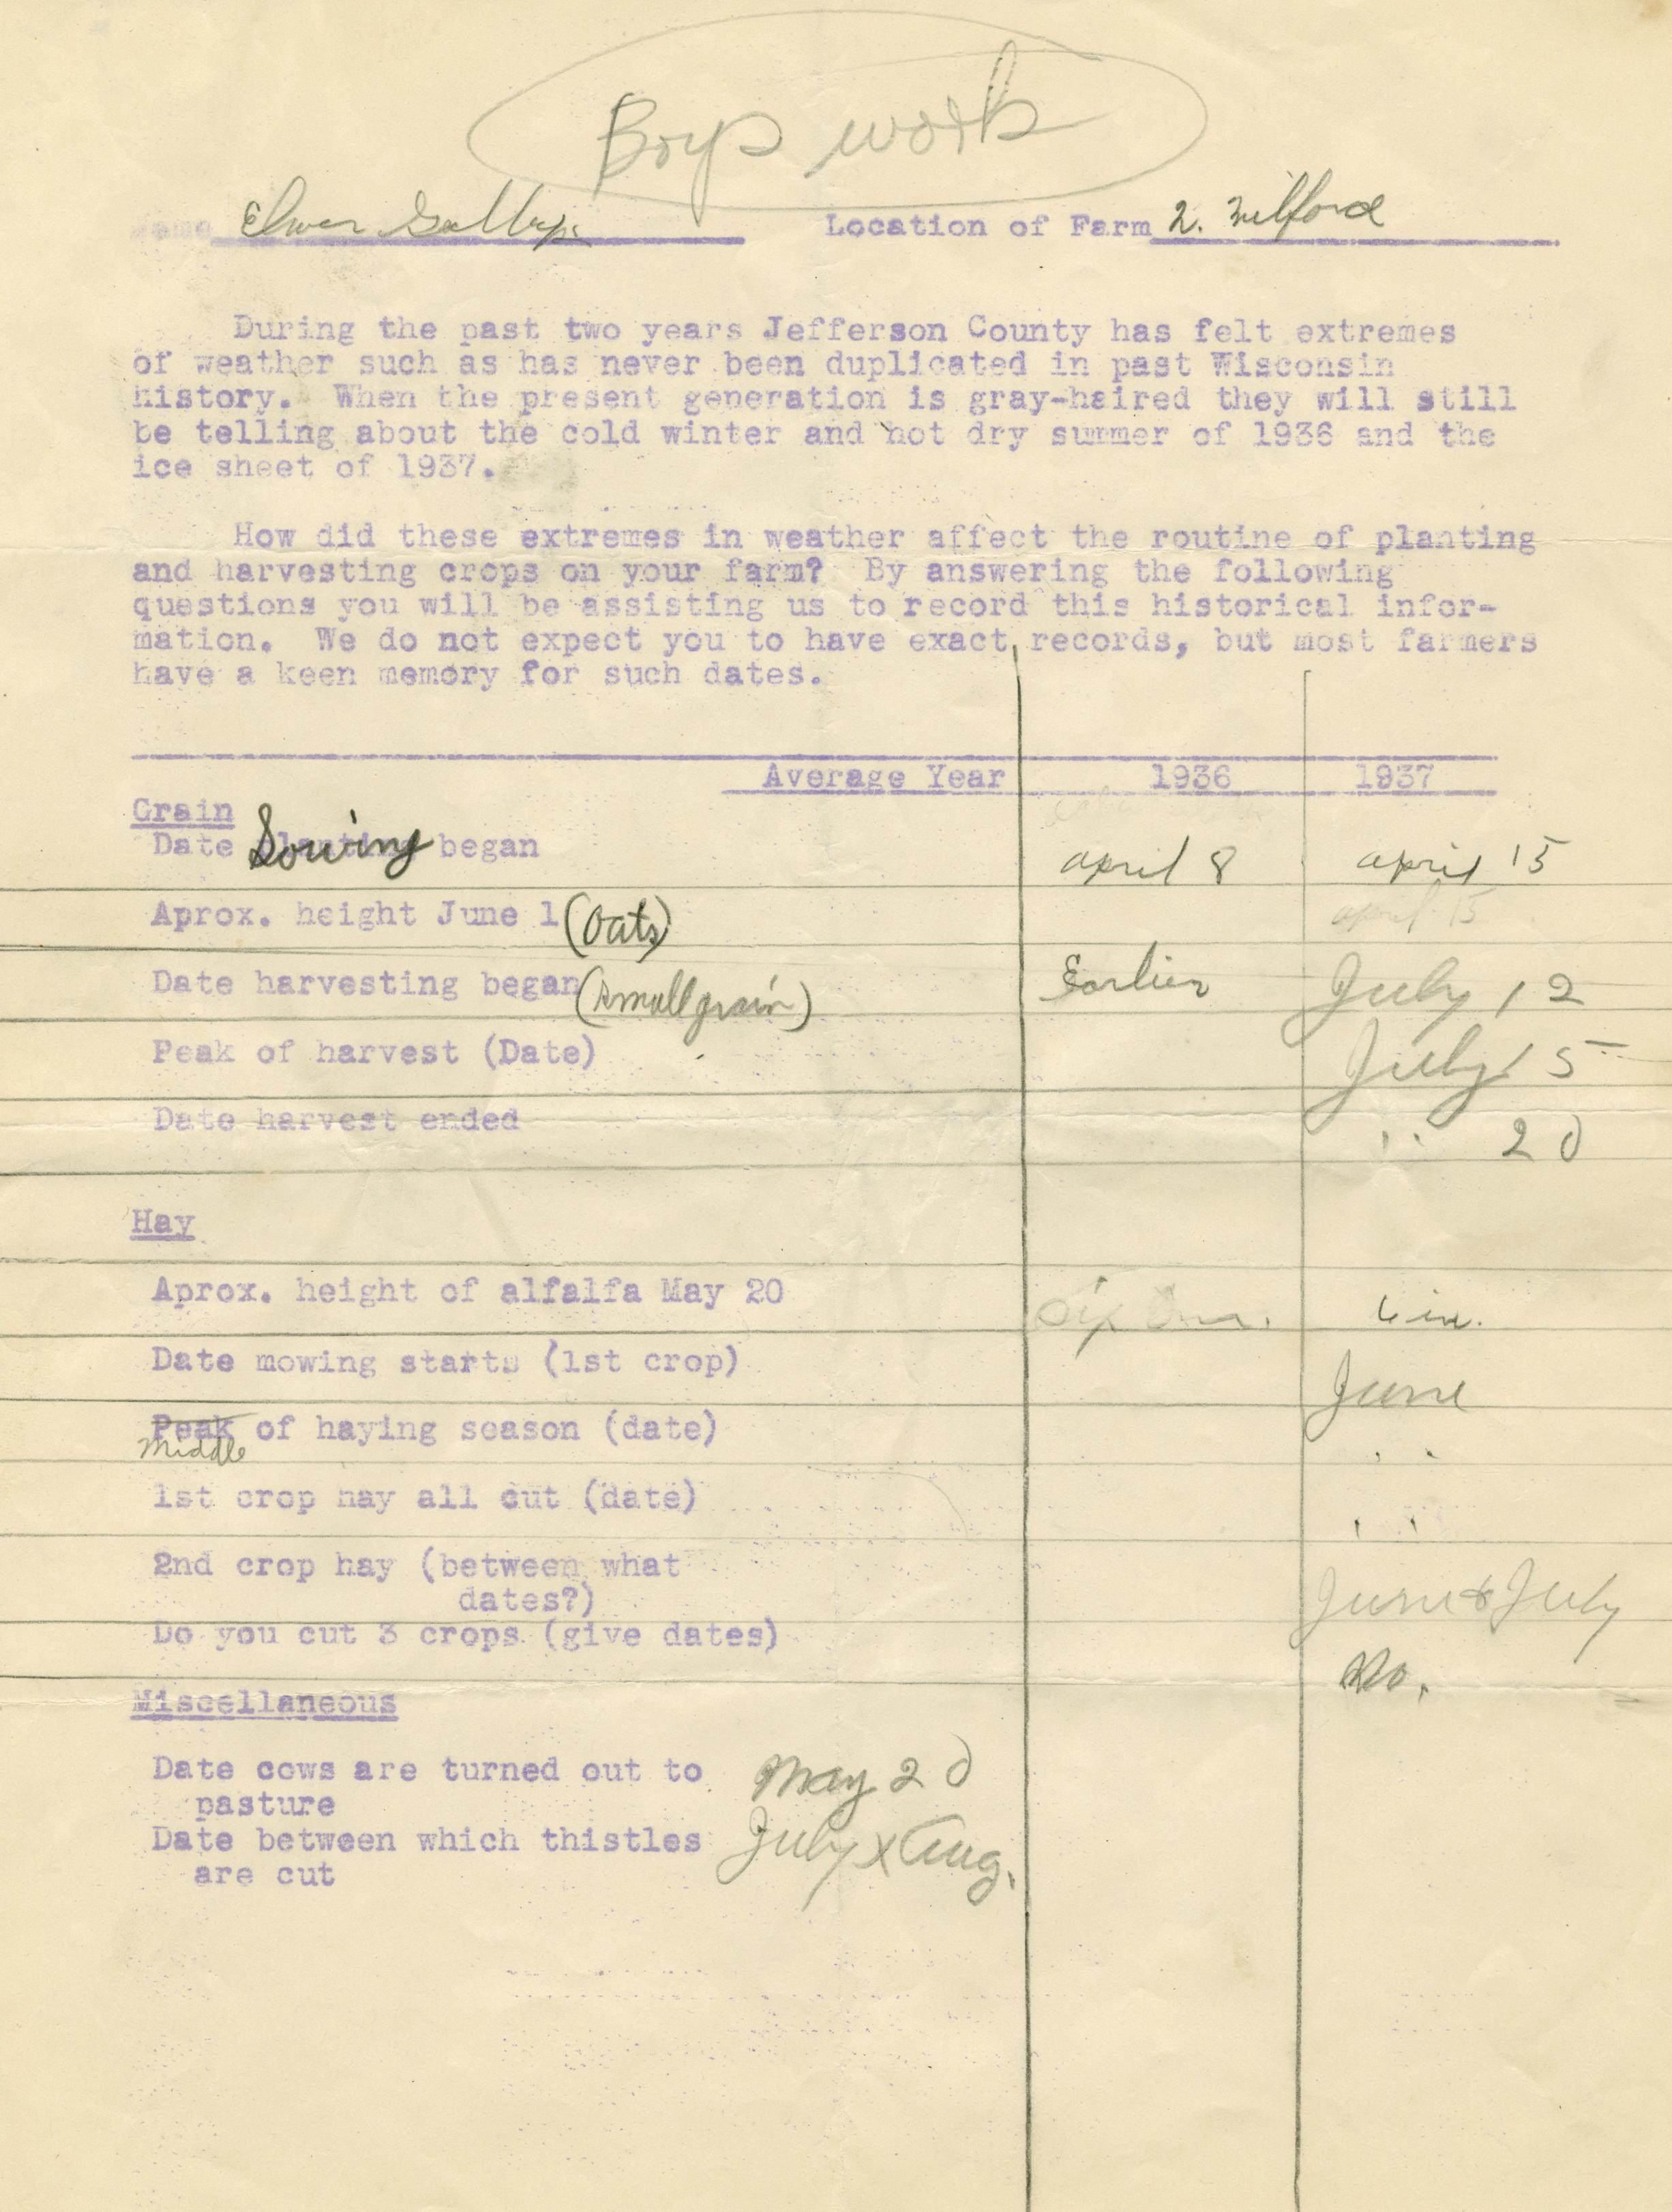 Boys work
Name Elmer Gallup Location of Farm Milford
During the past two years Jefferson County has felt extremes
of weather such as has never been duplicated in past Wisconsin
history. When the present generation is gray-haired they will still
be telling about the cold winter and hot dry summer of 1936 and the
ice sheet of 1937.
How did these extremes in weather affect the routine of planting
and harvesting crops on your farm? By answering the following
questions you will be assisting us to record this historical infor-
mation. We do not expect you to have exact records, but most farmers
have a keen memory for such dates.
Average Year 1936 1937
Grain
Date Sowing began april 8 april 15
Aprox. height June 1 (Oats) april 15
Date harvesting began (small grain) Earlier July 12
Peak of harvest (Date) July 15
Date harvest ended " 20
Hay
Aprox. height of alfalfa May 20 Six 6 in.
Date mowing starts (1st crop) June
Peak of haying season (date) " "
Middle
1st crop hay all cut (date) " "
2nd crop hay (between what
dates?) June & July
Do you cut 3 crops (give dates) No.
Miscellaneous
Date cows are turned out to May 20
pasture
Date between which thistles July x Aug.
are cut